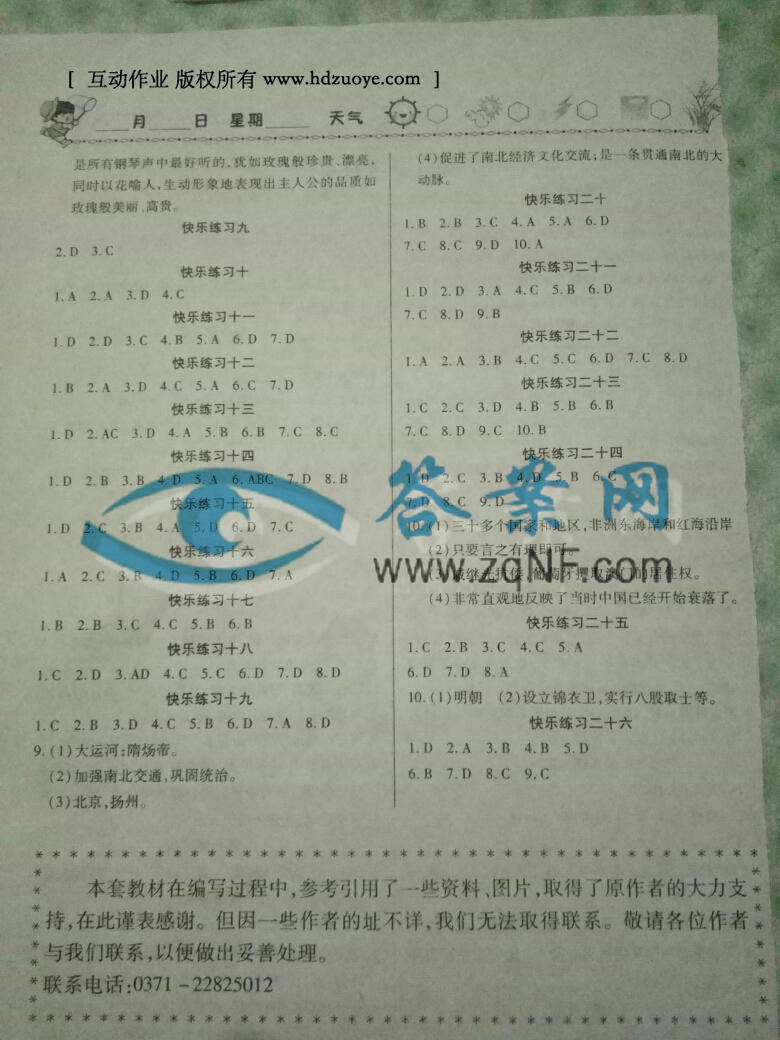 [ 互动作业 版权所有 www.hdzuoye.com ]
月 日 星期 天气
是所有钢琴声中最好听的,犹如玫瑰般珍贵、漂亮,
同时以花喻人,生动形象地表现出主人公的品质如
玫瑰般美丽、高贵。
快乐练习九
2.D 3.C
快乐练习十
1.A 2.A 3.D 4.C
快乐练习十一
1.D 2.D 3.C 4.B 5.A 6.D 7.D
快乐练习十二
1.B 2.A 3.D 4.C 5.A 6.C 7.D
快乐练习十三
1.D 2.AC 3.D 4.A 5.B 6.B 7.C 8.C
快乐练习十四
1.D 2.B 3.B 4.D 5.A 6.ABC 7.D 8.B
快乐练习十五
1.D 2.C 3.B 4.A 5.D 6.D 7.C
快乐练习十六
1.A 2.C 3.B 4.D 5.B 6.D 7.A
快乐练习十七
1.B 2.B 3.C 4.C 5.B 6.B
快乐练习十八
1.C 2.D 3.AD 4.C 5.C 6.D 7.D 8.D
快乐练习十九
1.C 2.B 3.D 4.C 5.C 6.D 7.A 8.D
9.(1)大运河;隋炀帝。
(2)加强南北交通,巩固统治。
(3)北京,扬州。
(4)促进了南北经济文化交流;是一条贯通南北的大
动脉。
快乐练习二十
1.B 2.B 3.C 4.A 5.A 6.D
7.C 8.C 9.D 10.A
快乐练习二十一
1.D 2.D 3.A 4.C 5.B 6.D
7.C 8.D 9.B
快乐练习二十二
1.A 2.A 3.B 4.C 5.C 6.D 7.C 8.D
快乐练习二十三
1.C 2.B 3.C 4.B 5.B 6.B
7.C 8.C 9.C 10.B
快乐练习二十四
1.D 2.C 3.B 4.D 5.B 6.C
7.D 8.C 9.D
10.(1)三十多个国家和地区,非洲东海岸和红海沿岸
(2)只要言之有理即可。
(3)戚继光抗倭,葡萄牙攫取澳门的居住权。
(4)非常直观地反映了当时中国已经开始衰落了。
快乐练习二十五
1.C 2.B 3.C 4.C 5.A
6.D 7.D 8.A
10.(1)明朝 (2)设立锦衣卫,实行八股取士等。
快乐练习二十六
1.D 2.A 3.B 4.B 5.D
6.B 7.D 8.C 9.C
答案网
www.zqNF.com
本套教材在编写过程中,参考引用了一些资料、图片,取得了原作者的大力支
持,在此谨表感谢。但因一些作者的址不详,我们无法取得联系。敬请各位作者
与我们联系,以便做出妥善处理。
联系电话:0371-22825012